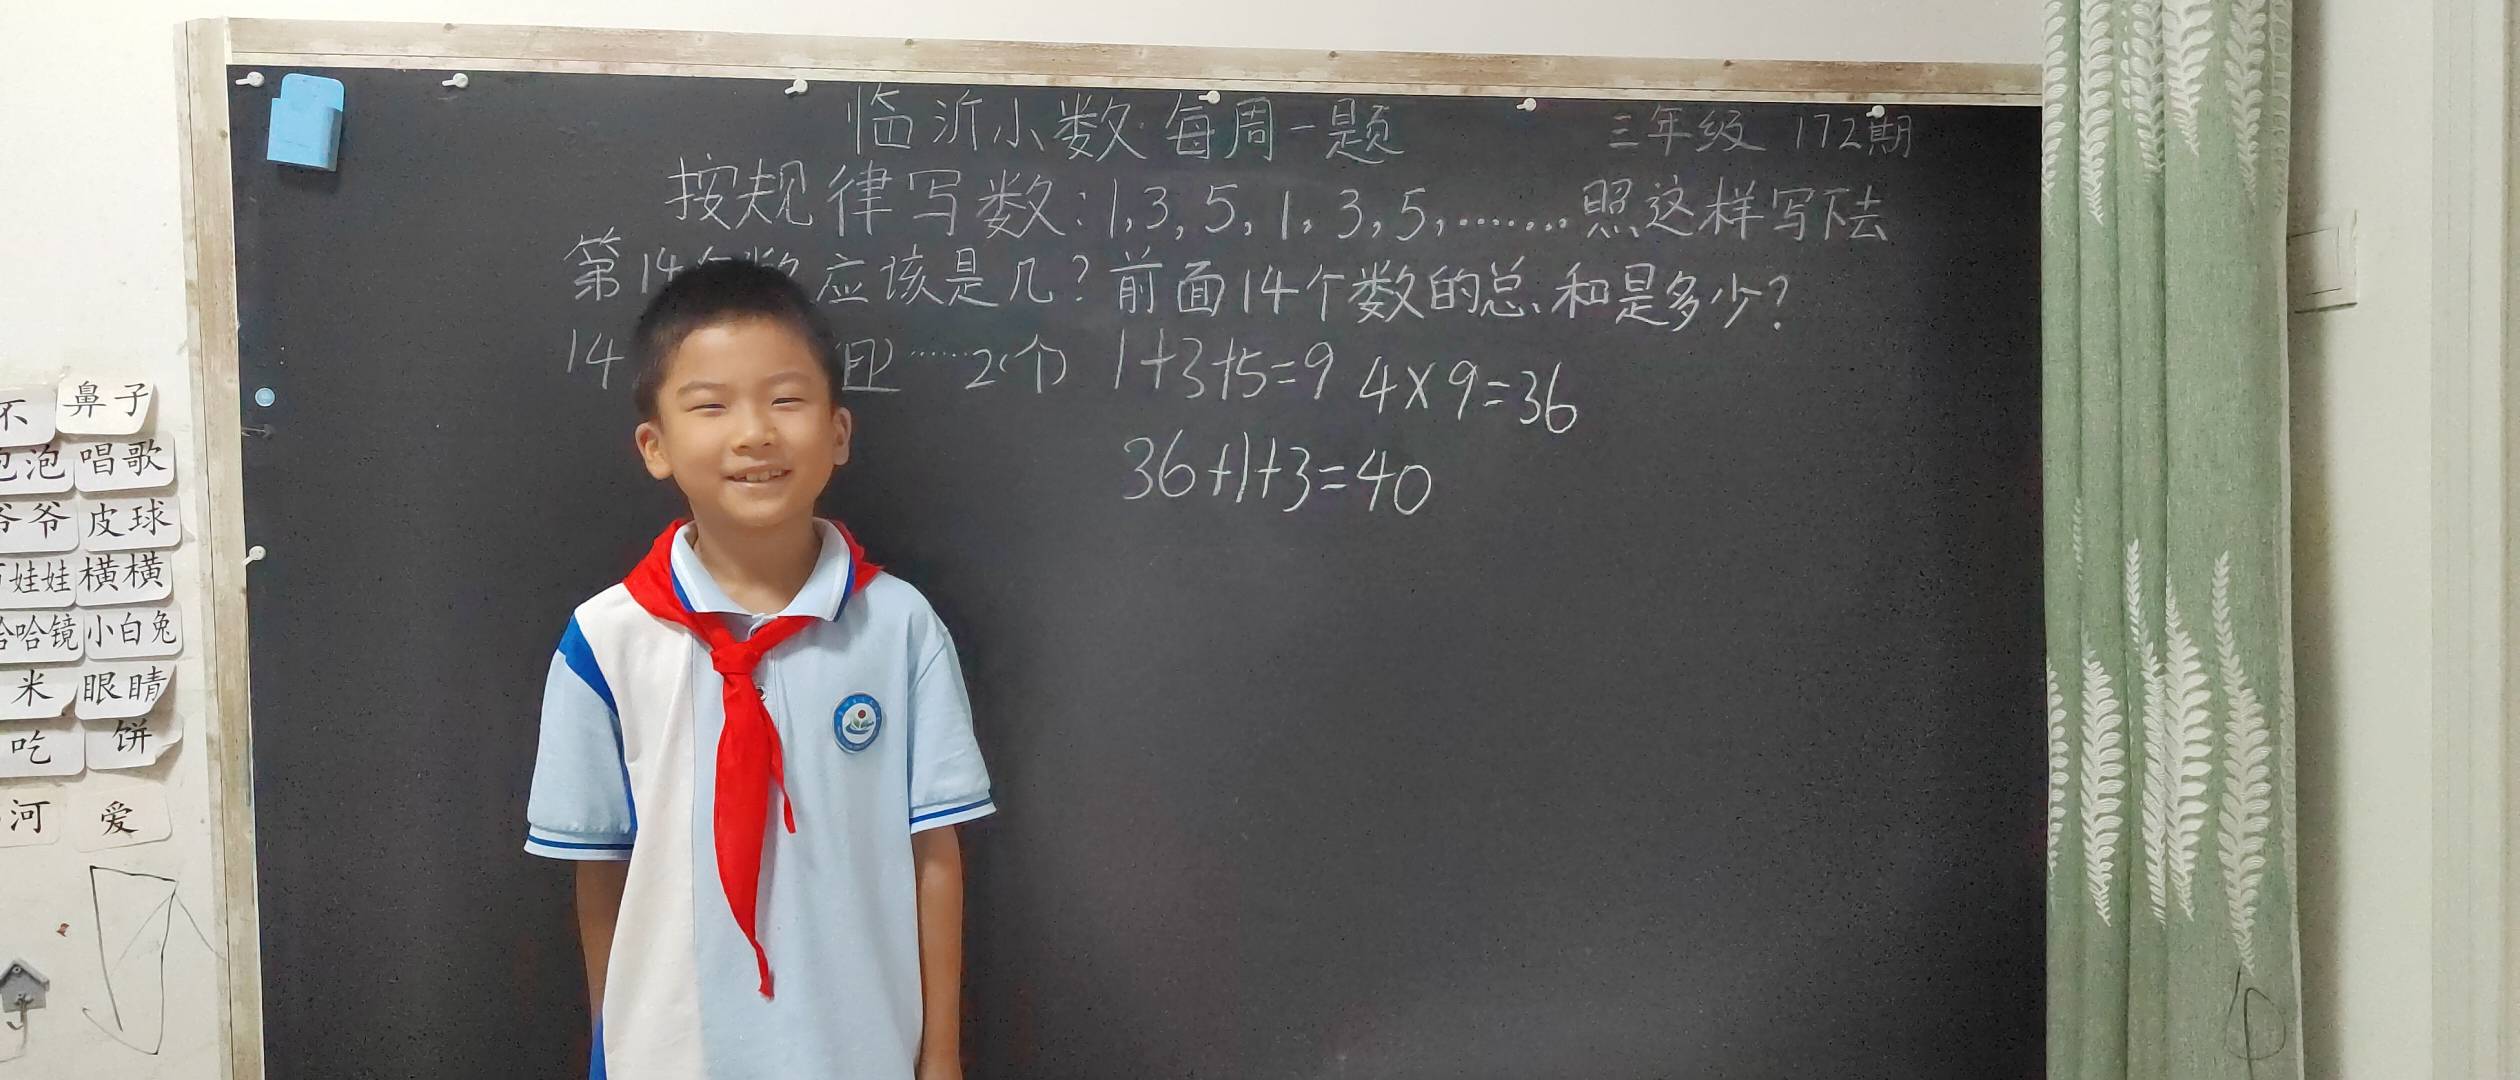 临沂小数每周一题 三年级 172期
按规律写数:1,3,5,1,3,5,……照这样写下去
第14个数应该是几?前面14个数的总和是多少?
14 (组)……2(个) 1+3+5=9 4×9=36
36+1+3=40
不 鼻子
泡 唱歌
爷爷 皮球
娃娃 横横
哈哈镜 小白兔
米 眼睛
吃 饼
河 爱